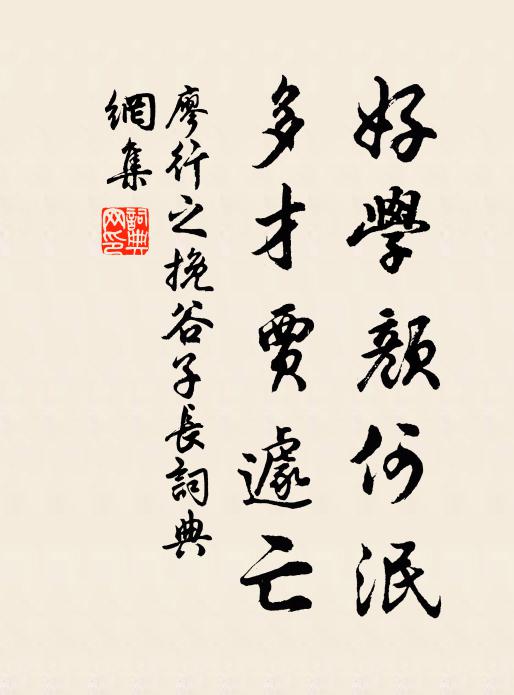 好學顏何泯
多才賈遽亡
廖行之挽谷子長詞典
網集
詞典网印